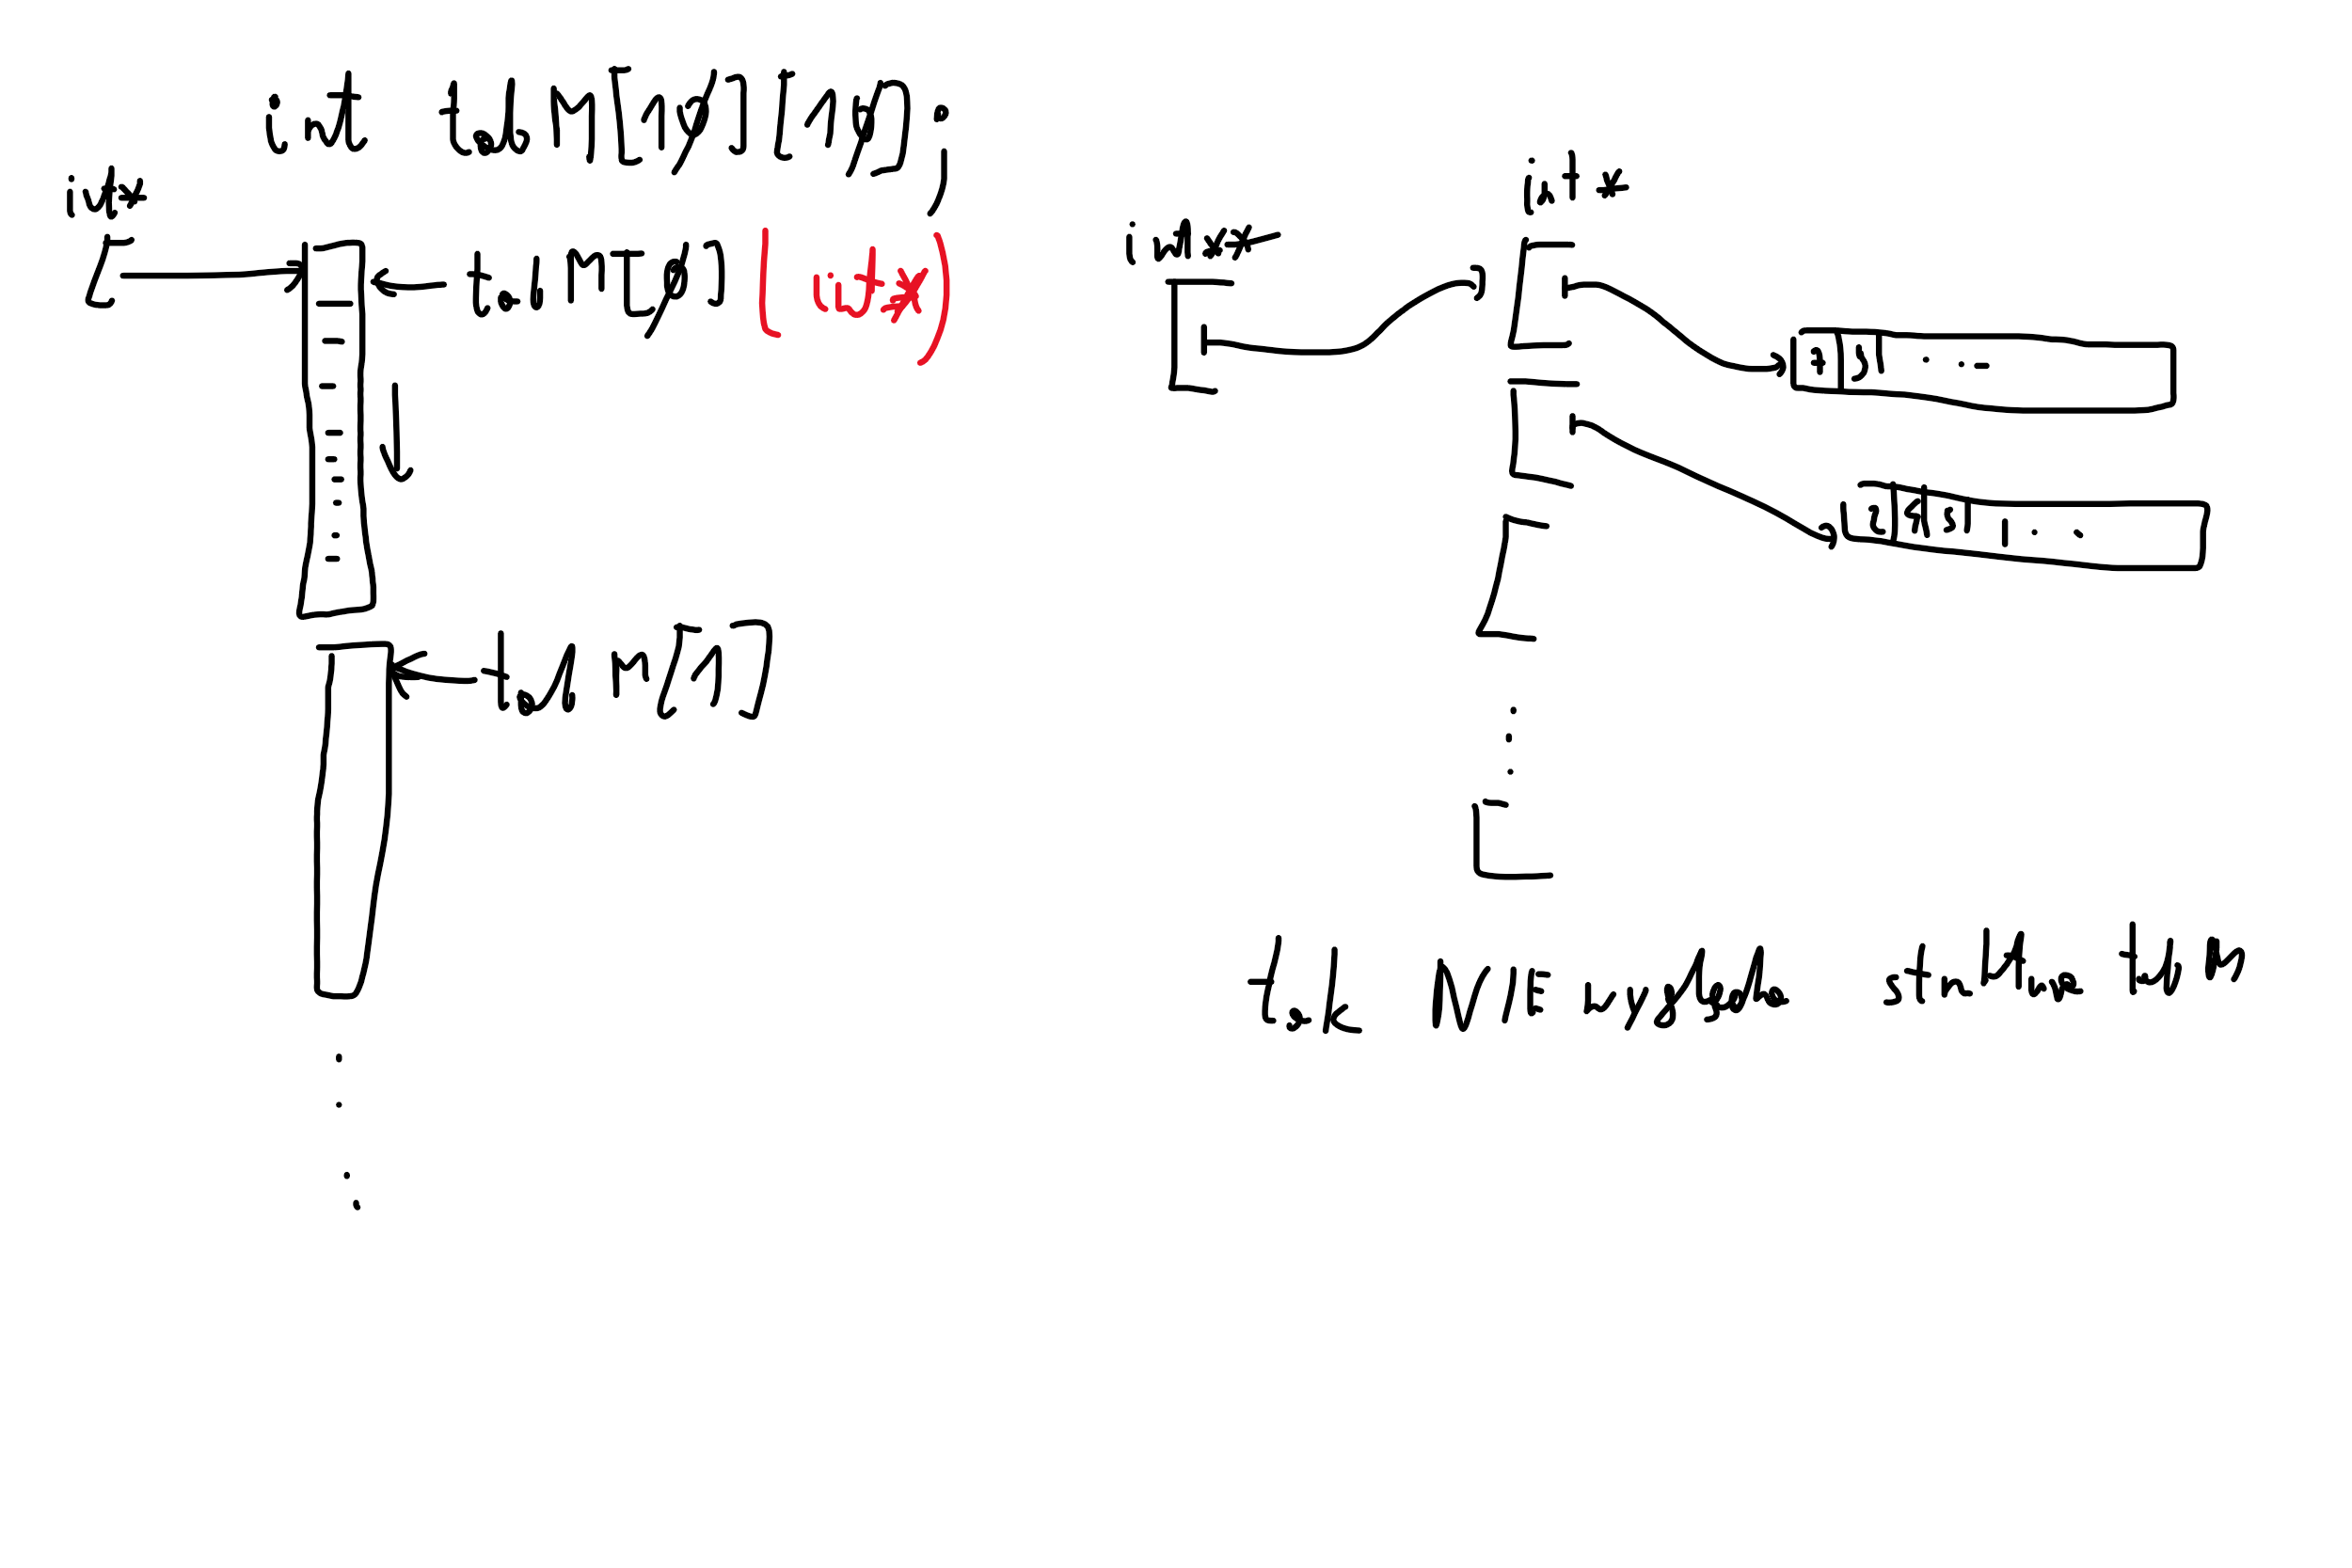 int tabM[10][10];
int*
tabM[0] (int*)
tabM[1]
int**
int*
tak NIE wygląda struktura tabM